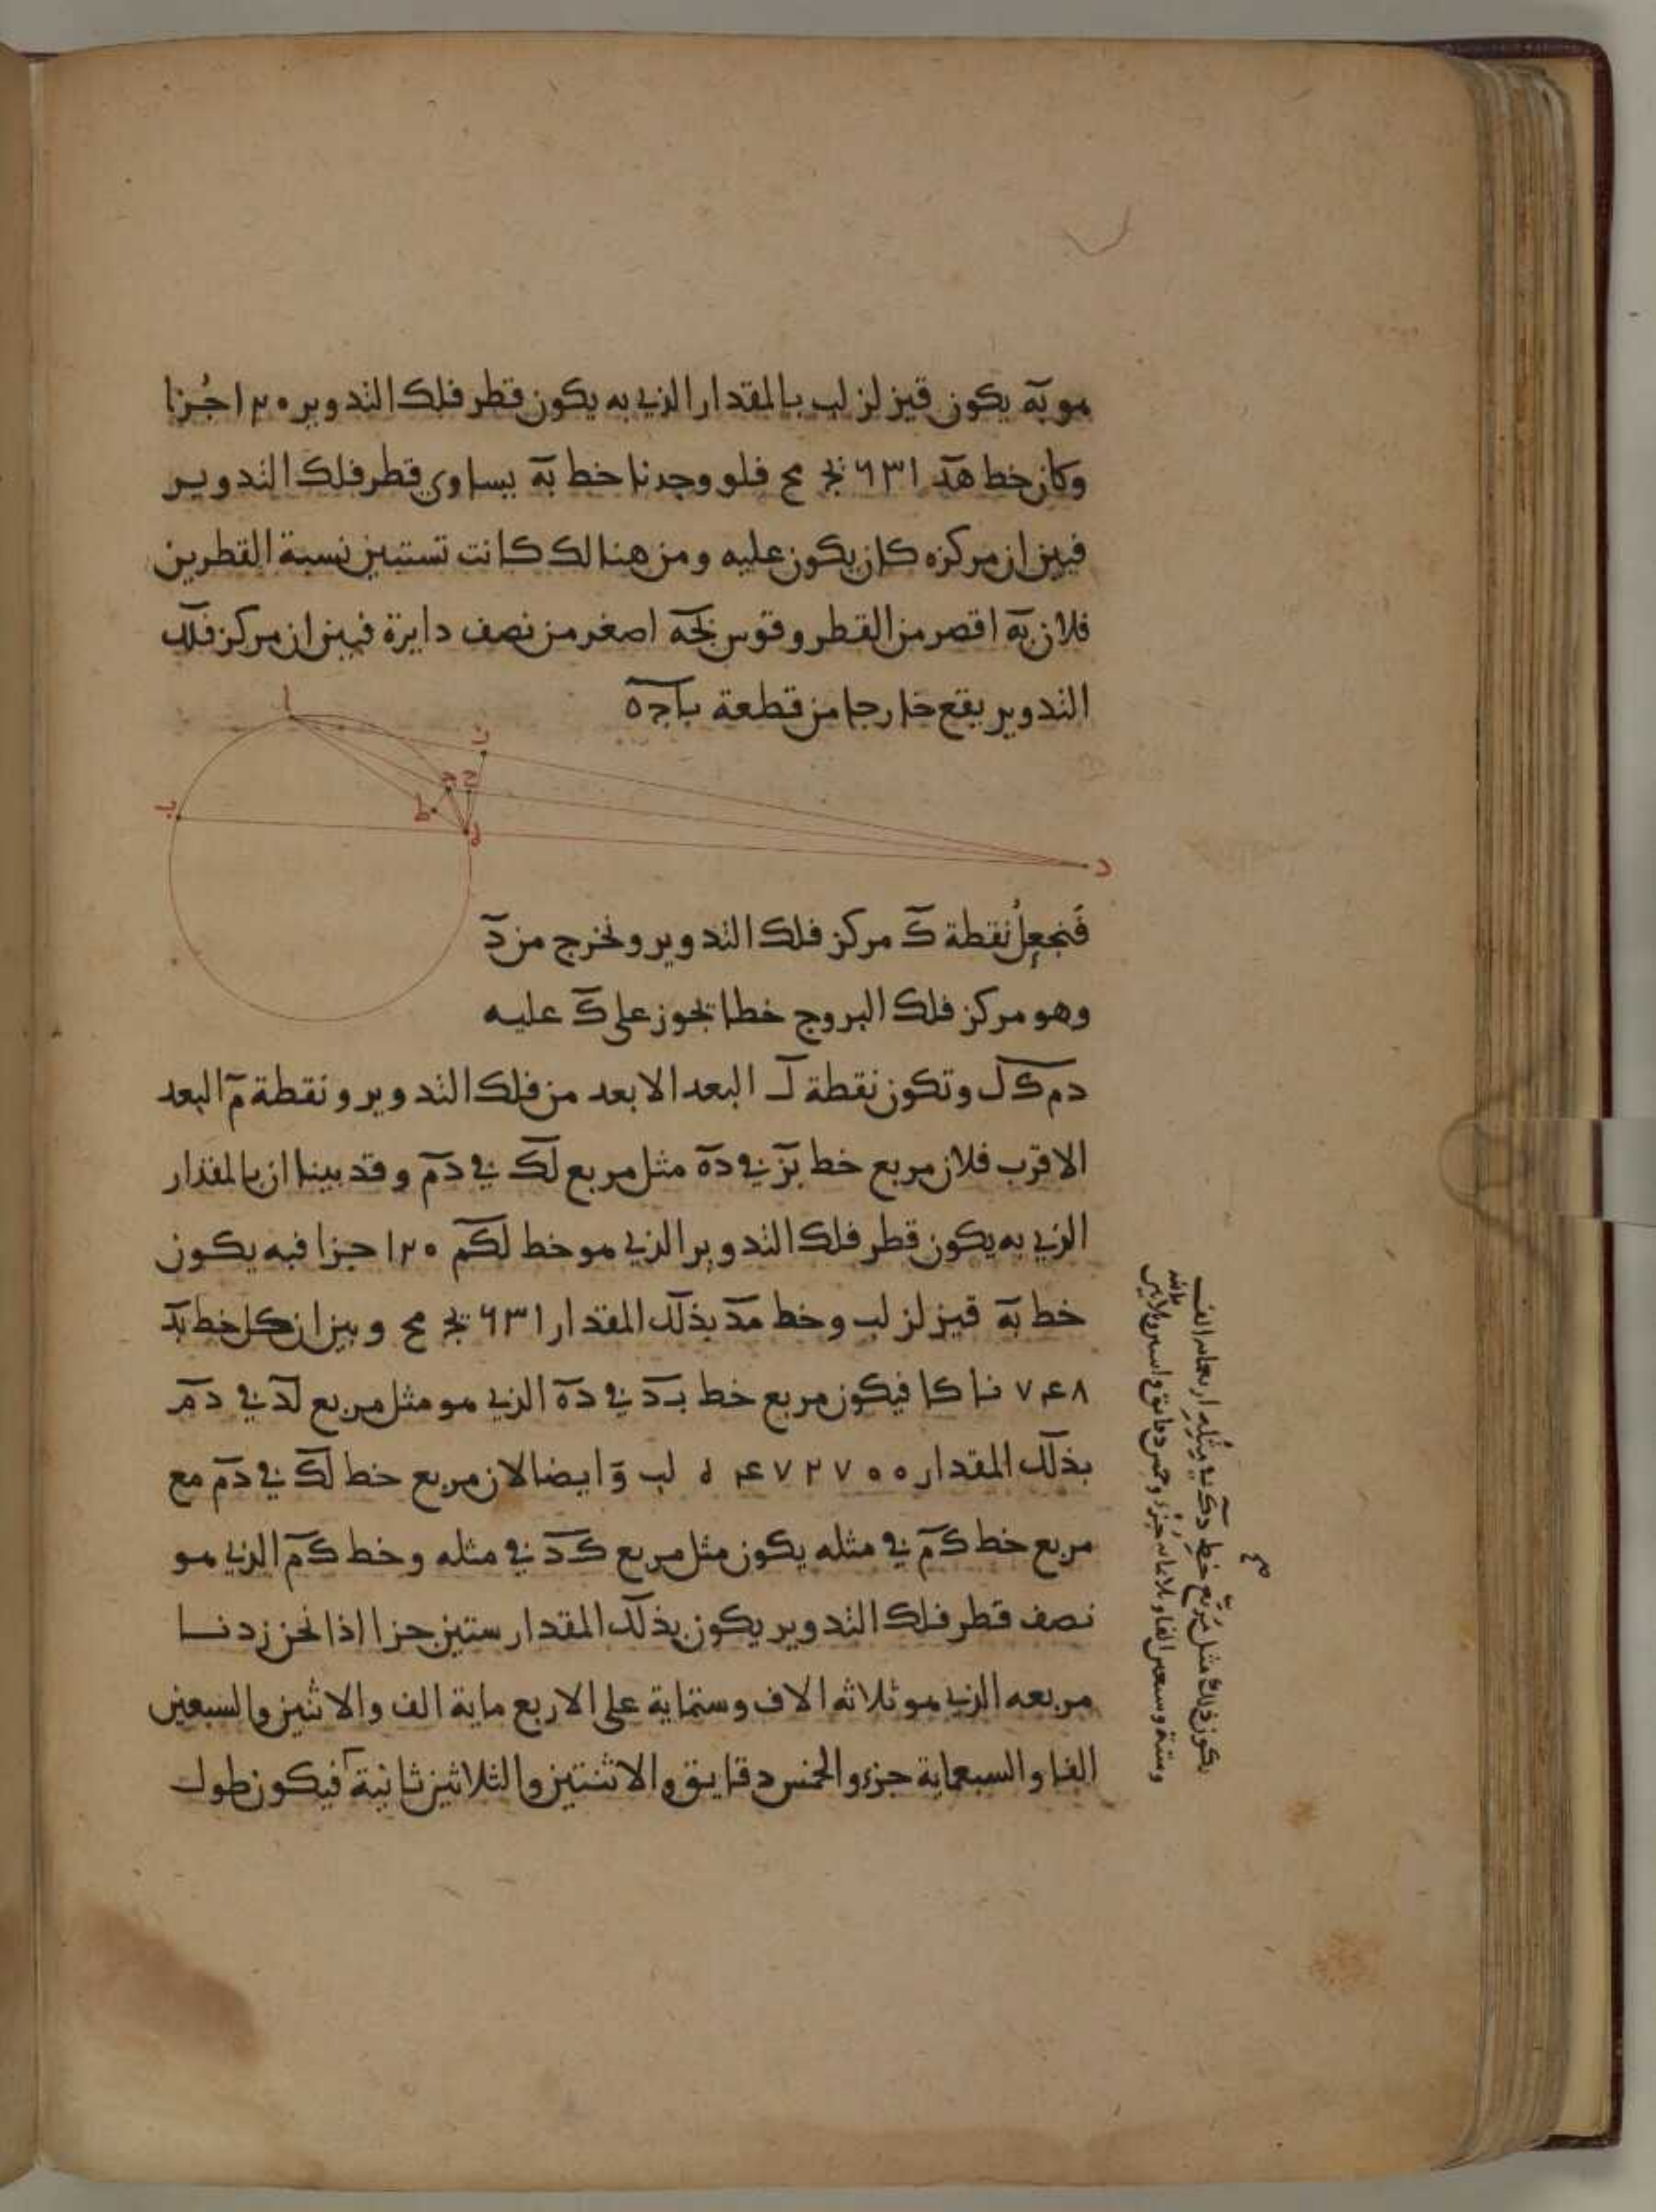 هو به يكون قيز لز لب بالمقدار الذي به يكون قطر فلك التدوير ١٢٠ جُزا
وكان خط هد ٦٣١ يج مح فلو وجدنا خط به يساوي قطر فلك التدويـر
فبين ان مركزه كان يكون عليه ومن هنالك كانت تستبين نسبة القطرين
فلان به اقصر من القطر وقوس بجه اصغر من نصف دايرة فبين ان مركز فلك
التدوير يقع خارجا من قطعة باجه
ا
ن
ج ح
ط
ب
ه
د
فَنجعلُ نقطة ك مركز فلك التدوير ونخرج من د
وهو مركز فلك البروج خطا يجوز على ك عليه
دم كل وتكون نقطة ل البعد الابعد من فلك التدوير ونقطة م البعد
الاقرب فلان مربع خط بد في ده مثل مربع لد في دم وقد بينا ان بالمقدار
الذي به يكون قطر فلك التدوير الذي هو خط لكم ١٢٠ جزا فبه يكون
خط به قيز لز لب وخط هد بذلك المقدار ٦٣١ يج مح وبين ان كل خط بد
٧٤٨ نا كا فيكون مربع خط بد في ده الذي هو مثل مربع لد في دم
بذلك المقدار ٤٧٢٧٠٠ ه لب وايضا لان مربع خط لد في دم مع
مربع خط كم في مثله يكون مثل مربع كد في مثله وخط كم الذي هو
نصف قطر فلك التدوير يكون بذلك المقدار ستين جزا اذا نحن زدنـــا
مربعه الذي هو ثلاثه الاف وستماية على الاربع ماية الف والاثنين والسبعين
الفا والسبعماية جزء والخمس دقايق والاثنتين والثلاثين ثانية فيكون طول
يكون ذلك مثل مربّع خط دك في مثله اربعمايه الف
وستة وسبعين الفا وثلاثمايه جزء وخمس دقايق واثنين وثلاثين
ثانيه